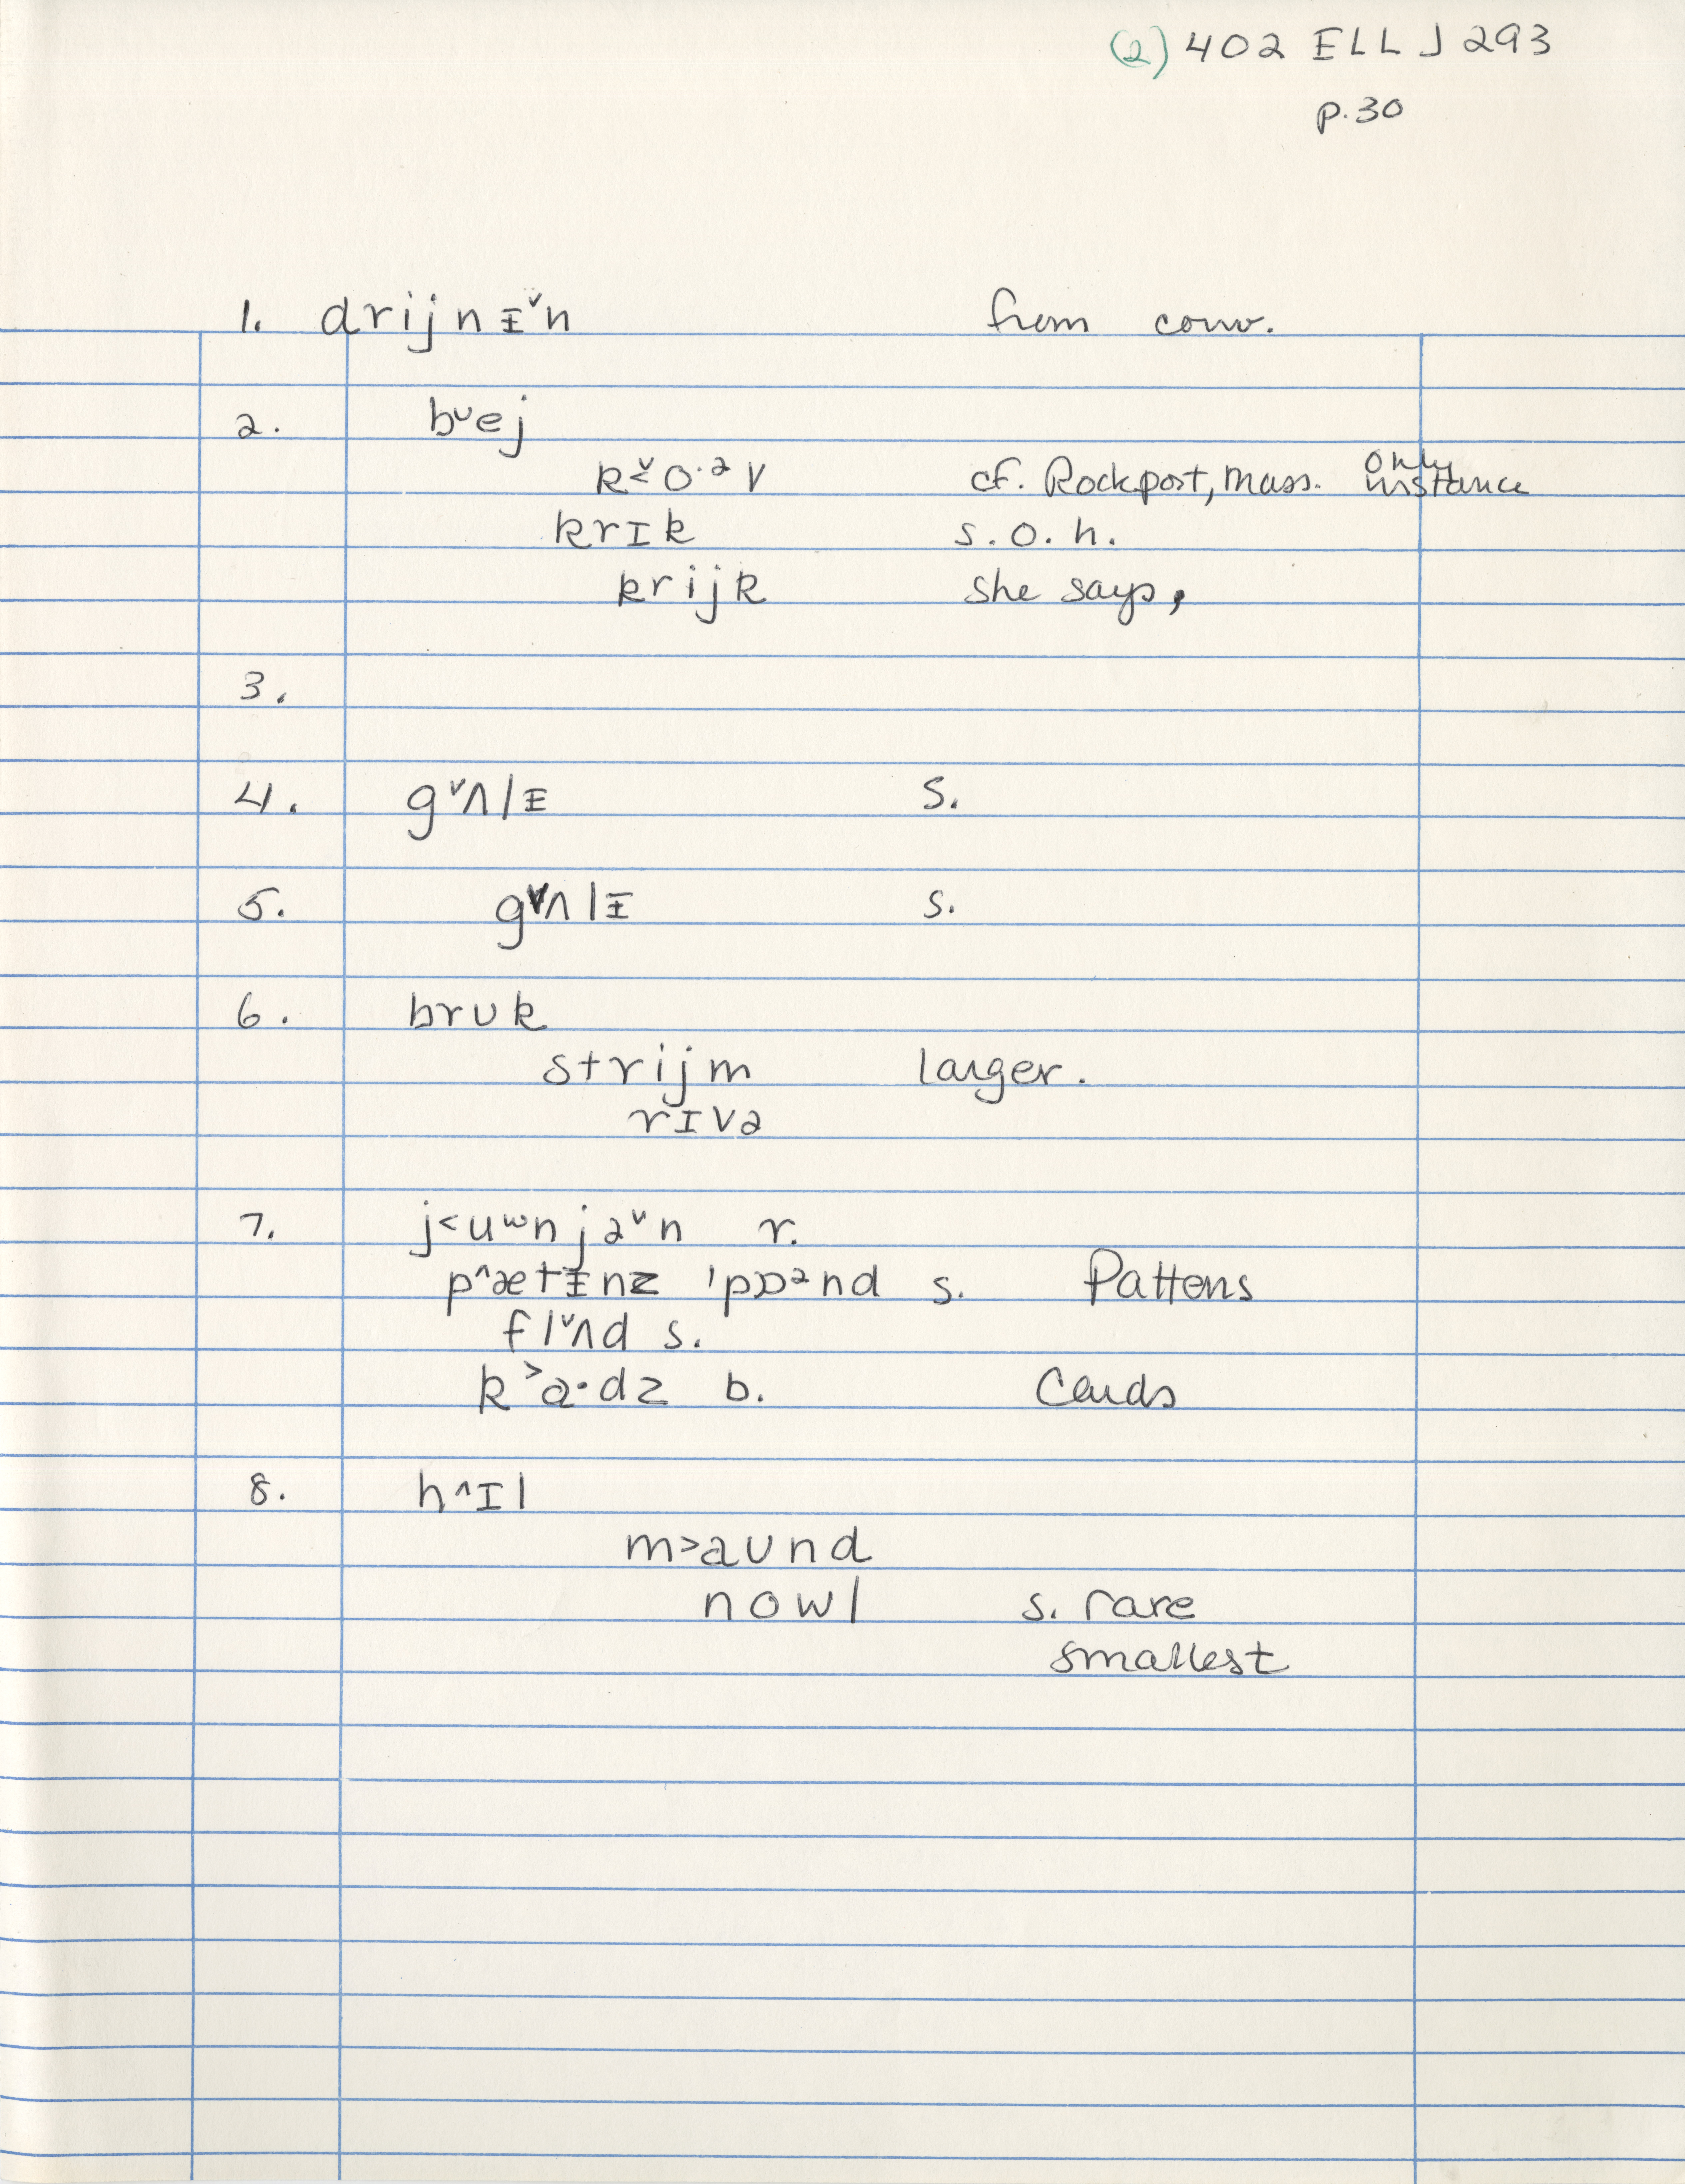 (2) 402 ELL J 293
p.30
1. drijnᵻ˅n from conv.
2. b˅ej
k˅˂o·ᵊv cf. Rockport, Mass. only instance
krɪk s.o.h.
krijk she says,
3.
4. g˅ʌlᵻ s.
5. g˅ʌlᵻ s.
6. brʊk
strijm larger.
rɪvə
7. j˂uʷnjə˅n r.
p˄ætᵻnz 'pɒᵊnd s. Pattens
fl˅ʌd s.
k˃a·dz b. Cards
8. h˄ɪl
m˃aʊnd
nowl s. rare
smallest